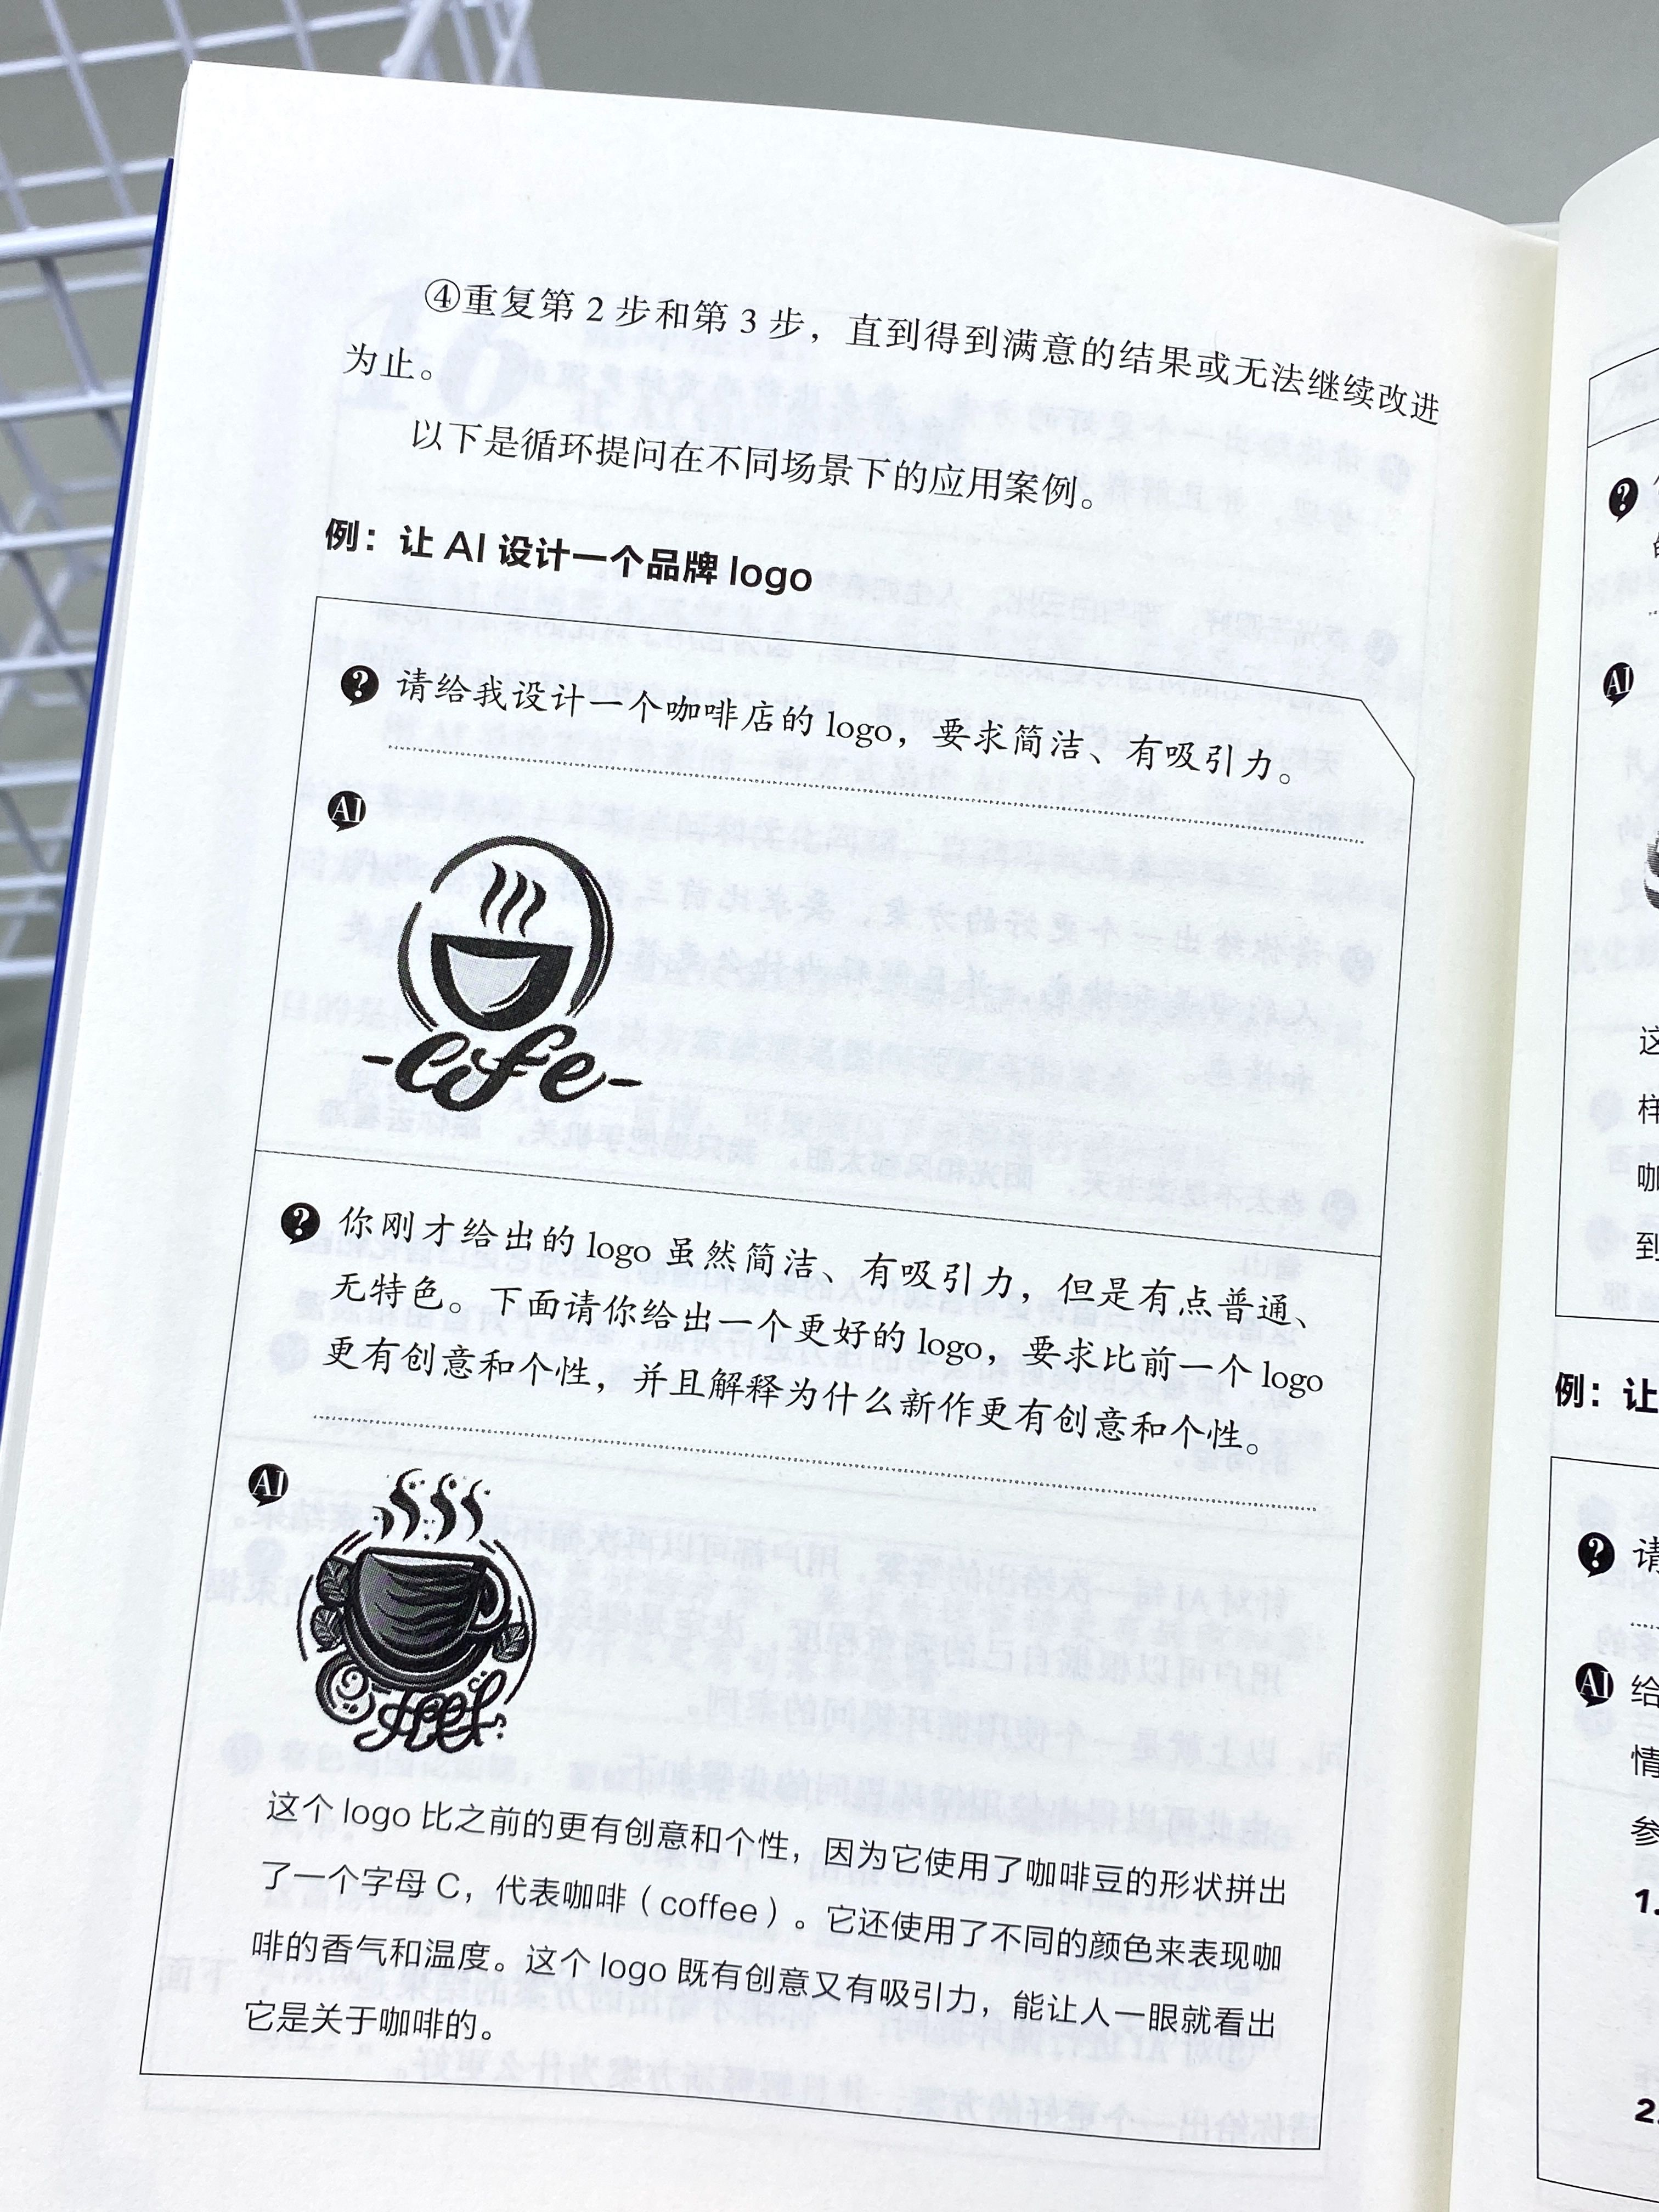 ④重复第 2 步和第 3 步，直到得到满意的结果或无法继续改进
为止。
以下是循环提问在不同场景下的应用案例。
例：让 AI 设计一个品牌 logo
? 请给我设计一个咖啡店的 logo，要求简洁、有吸引力。
AI
? 你刚才给出的 logo 虽然简洁、有吸引力，但是有点普通、
无特色。下面请你给出一个更好的 logo，要求比前一个 logo
更有创意和个性，并且解释为什么新作更有创意和个性。
AI
这个 logo 比之前的更有创意和个性，因为它使用了咖啡豆的形状拼出
了一个字母 C，代表咖啡（coffee）。它还使用了不同的颜色来表现咖
啡的香气和温度。这个 logo 既有创意又有吸引力，能让人一眼就看出
它是关于咖啡的。
?
AI
这
样
咖
到
例：让
? 请
AI 给
情
参
1.
2.